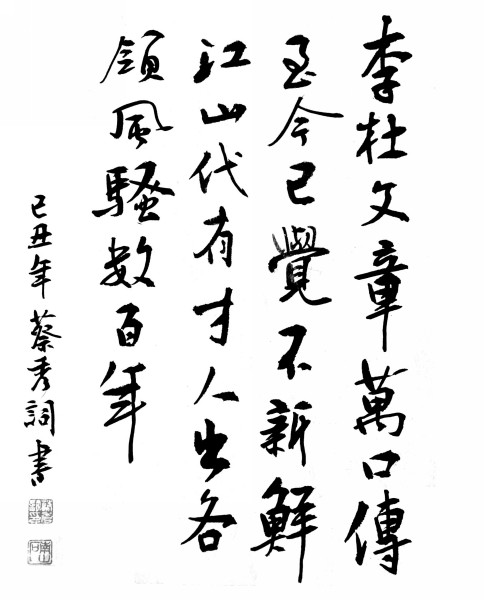 李杜文章萬口傳
至今已覺不新鮮
江山代有才人出各
領風騷數百年
己丑年蔡秀詞書